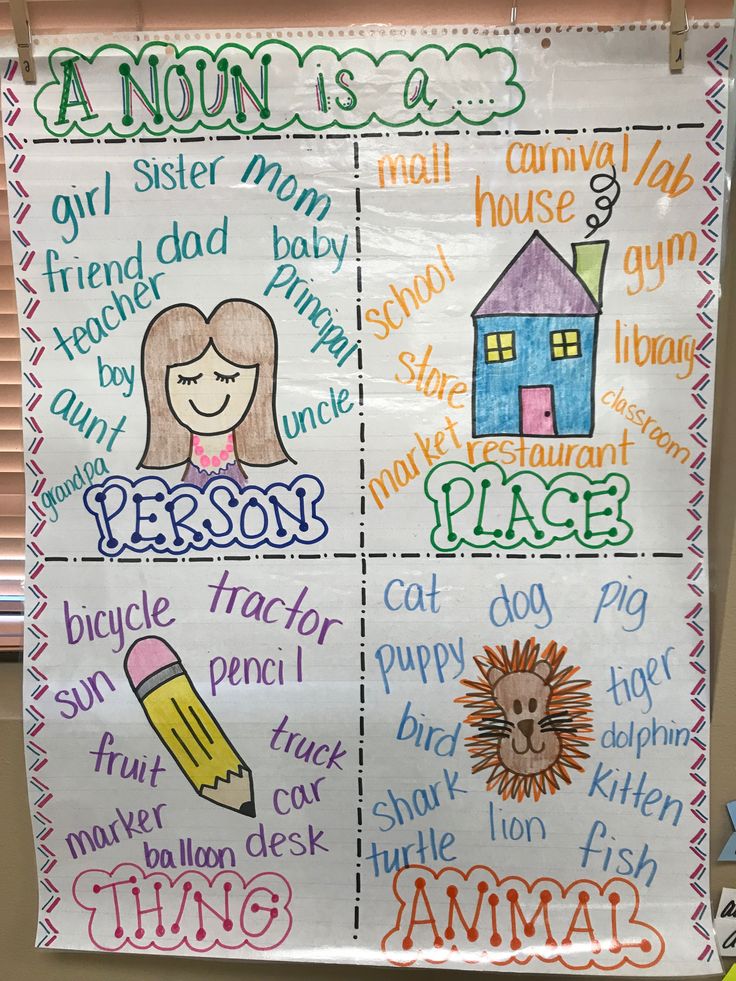 A NOUN is a ....
girl sister mom
friend dad baby
teacher principal
boy
aunt uncle
grandpa
PERSON
mall carnival lab
house
school gym
store library
classroom
market restaurant
PLACE
bicycle tractor
sun pencil
fruit truck
car
marker balloon desk
THING
cat dog pig
puppy tiger
bird dolphin
shark lion kitten
turtle fish
ANIMAL